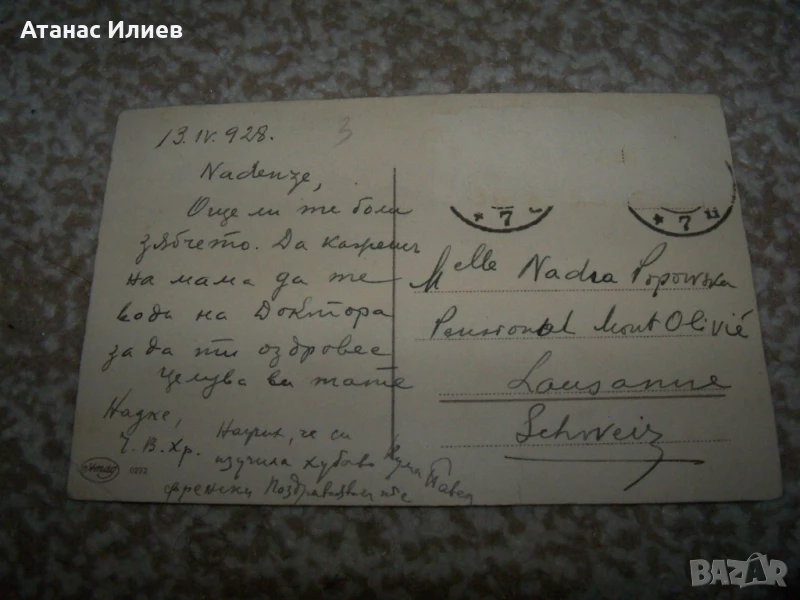 Атанас Илиев
13.IV.928.
3
Nadenze,
Още ли те боли
зъбчето. Да кажеш
на мама да те
води на Доктора
за да ти оздравее
Целува ви тате
Надке,
Ч. В. Хр.
че си
изучила хубаво
френски Поздравявам те
Павел
7
7
Melle Nadia Popowska
Pensionat Mont Olivié
Lausanne
Schweiz
BAZAR